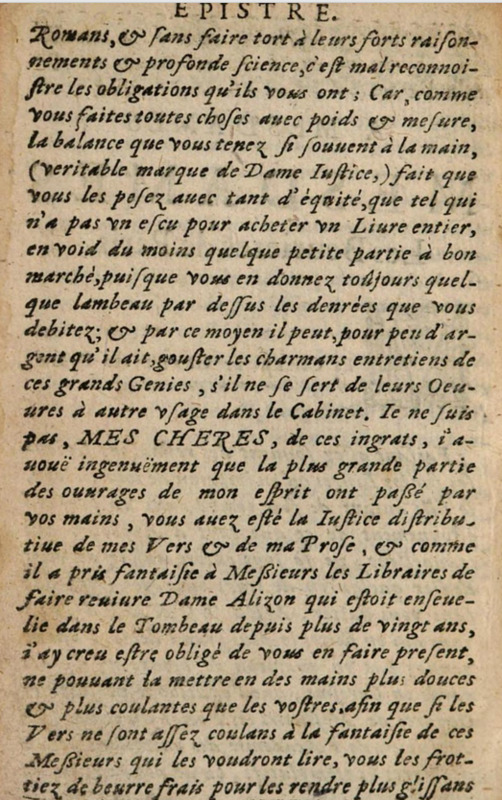 EPISTRE.
Romans, & sans faire tort à leurs forts raison-
nements & profonde science, c'est mal reconnoi-
stre les obligations qu'ils vous ont ; Car, comme
vous faites toutes choses auec poids & mesure,
la balance que vous tenez si souuent à la main,
(veritable marque de Dame Iustice,) fait que
vous les pesez auec tant d'équité, que tel qui
n'a pas vn escu pour acheter vn Liure entier,
en void du moins quelque petite partie à bon
marché, puisque vous en donnez toûjours quel-
que lambeau par dessus les denrées que vous
debitez; & par ce moyen il peut, pour peu d'ar-
gent qu'il ait, gouster les charmans entretiens de
ces grands Genies , s'il ne se sert de leurs Oeu-
ures à autre vsage dans le Cabinet. Ie ne suis
pas, MES CHERES, de ces ingrats, i'a-
uouë ingenuëment que la plus grande partie
des ouurages de mon esprit ont passé par
vos mains , vous auez esté la Iustice distribu-
tiue de mes Vers & de ma Prose , & comme
il a pris fantaisie à Messieurs les Libraires de
faire reuiure Dame Alizon qui estoit enseue-
lie dans le Tombeau depuis plus de vingt ans,
i'ay creu estre obligé de vous en faire present,
ne pouuant la mettre en des mains plus douces
& plus coulantes que les vostres, afin que si les
Vers ne sont assez coulans à la fantaisie de ces
Messieurs qui les voudront lire, vous les frot-
tiez de beurre frais pour les rendre plus glissans